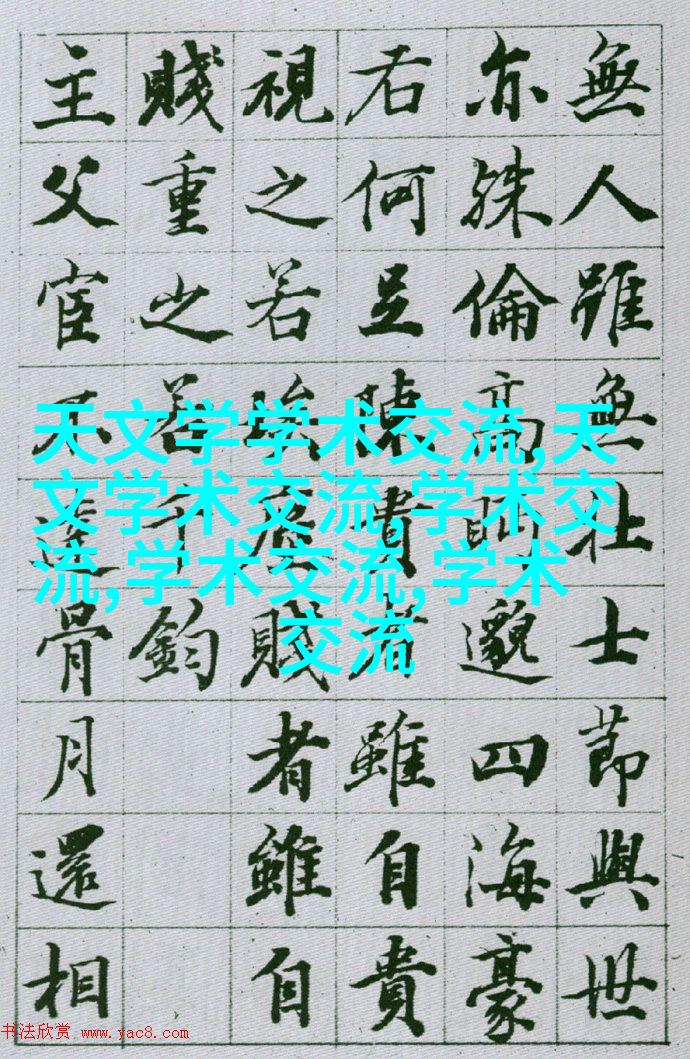 無人雖無壯士節與世
亦殊倫高眄邈四海豪
右何足陳貴者雖自貴
視之若埃塵賤者雖自
賤重之若千鈞
主父宦不達骨月還相
天文学学术交流,天
文学术交流,学术交
流,学术交流,学术
交流
书法欣赏 www.yac8.com